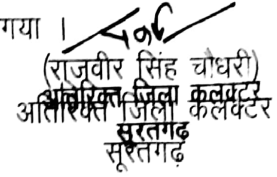 गया ।
(राजवीर सिंह चौधरी)
अतिरिक्त जिला कलक्टर
अतिरिक्त जिला कलेक्टर
सूरतगढ़
सूरतगढ़